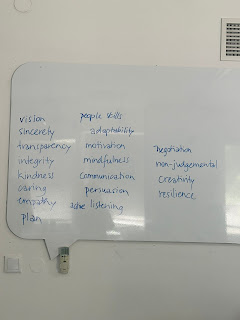 vision
sincerety
transparency
integrity
kindness
caring
empathy
plan
people skills
adaptability
motivation
mindfulness
communication
persuasion
active listening
negotiation
non-judgemental
creativity
resilience